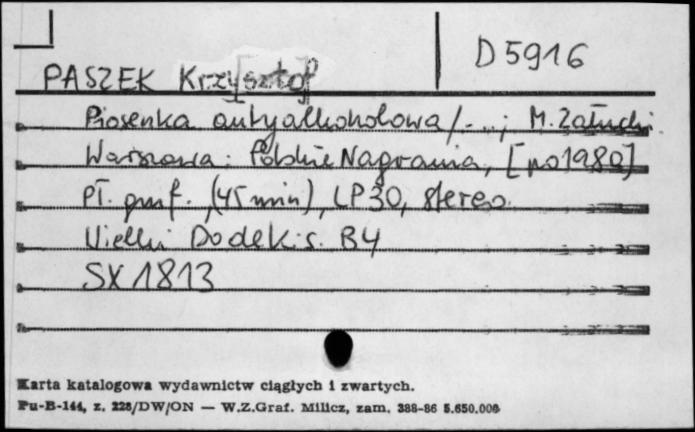 D 5916
PASZEK Krzy[sztof]
Piosenka antyalkoholowa / ...; M. Załucki.
Warszawa: Polskie Nagrania, [po 1980]
Pł. gmf. (45 min), LP30, stereo.
Wielki Dodek s. B4
SX 1813
Karta katalogowa wydawnictw ciągłych i zwartych.
Pu-B-144, z. 228/DW/ON — W.Z.Graf. Milicz, zam. 388-86 5.650.000